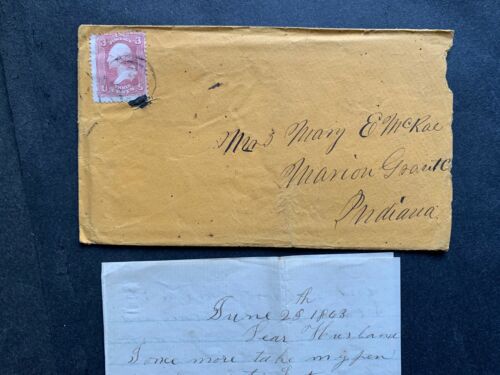 3 3
Mrs Mary E McRae
Marion Grant C
Indiana
June 25th 1863
Dear Husband
I once more take my pen